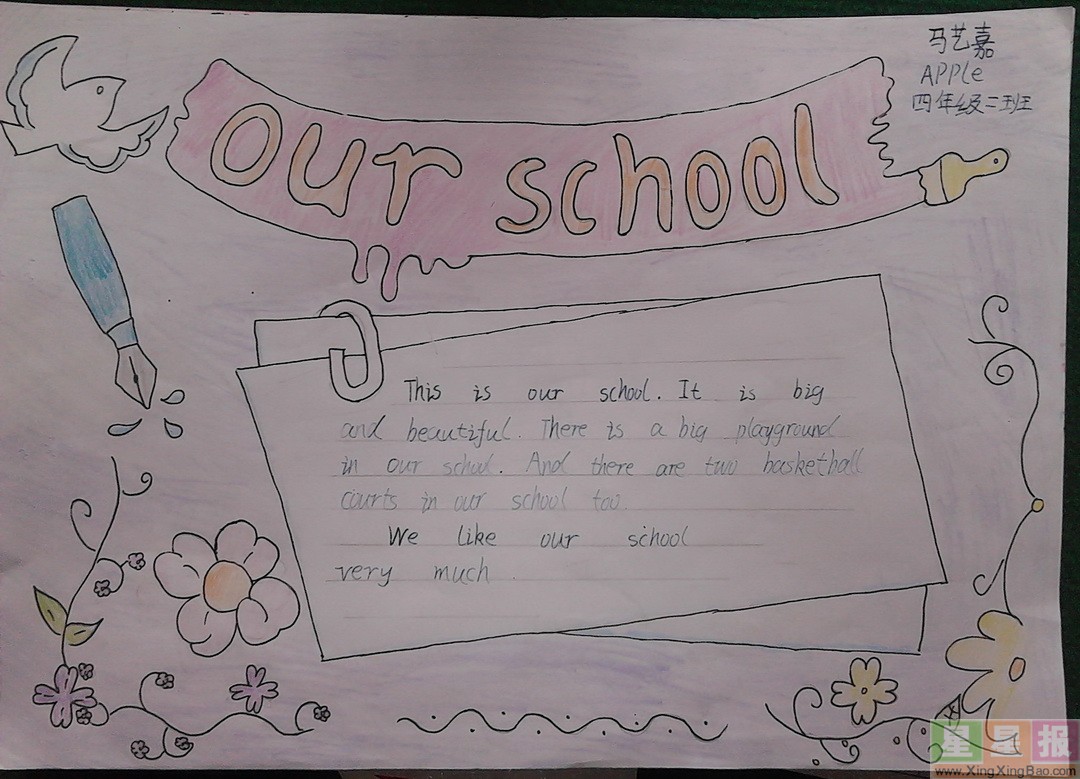 our school
马艺嘉
APPle
四年级二班
This is our school. It is big
and beautiful. There is a big playground
in our school. And there are two basketball
courts in our school too.
We like our school
very much.
星星报
www.XingXingBao.com